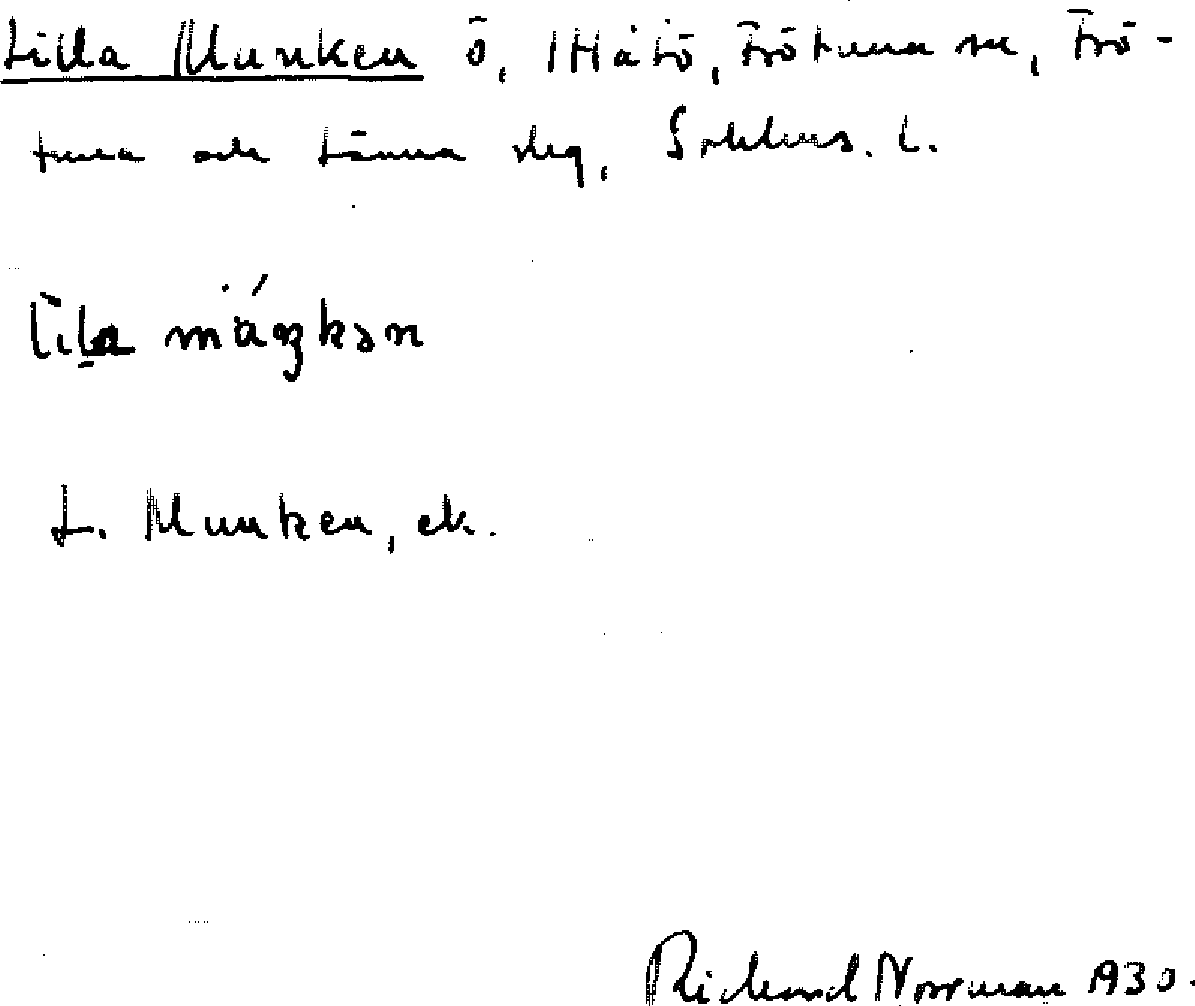 Lilla Munken ö, Håtö, Frötuna sn, Frö-
tuna och Länna slg, Sthlms. l.
lila
L. Munken, ek.
Richard Norrman 1930.